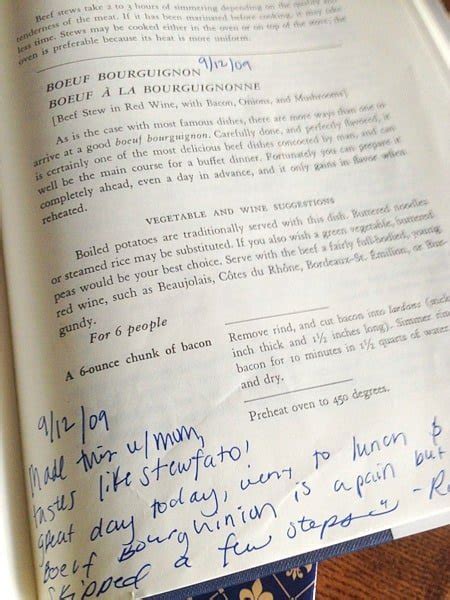 Beef stews take 2 to 3 hours of simmering depending on the quality and
tenderness of the meat. If it has been marinated before cooking, it may take
less time. Stews may be cooked either in the oven or on top of the stove; the
oven is preferable because its heat is more uniform.
9/12/09
BOEUF BOURGUIGNON
BOEUF À LA BOURGUIGNONNE
[Beef Stew in Red Wine, with Bacon, Onions, and Mushrooms]
As is the case with most famous dishes, there are more ways than one to
arrive at a good boeuf bourguignon. Carefully done, and perfectly flavored, it
is certainly one of the most delicious beef dishes concocted by man, and can
well be the main course for a buffet dinner. Fortunately you can prepare it
completely ahead, even a day in advance, and it only gains in flavor when
reheated.
VEGETABLE AND WINE SUGGESTIONS
Boiled potatoes are traditionally served with this dish. Buttered noodles
or steamed rice may be substituted. If you also wish a green vegetable, buttered
peas would be your best choice. Serve with the beef a fairly full-bodied, young
red wine, such as Beaujolais, Côtes du Rhône, Bordeaux-St. Émilion, or Bur-
gundy.
For 6 people
A 6-ounce chunk of bacon
Remove rind, and cut bacon into lardons (sticks,
inch thick and 1½ inches long). Simmer rind
bacon for 10 minutes in 1½ quarts of water
and dry.
Preheat oven to 450 degrees.
9/12/09
Made this w/mom,
tastes like stewfato!
great day today, went to lunch &
Boeuf Bourguinion is a pain but
skipped a few steps